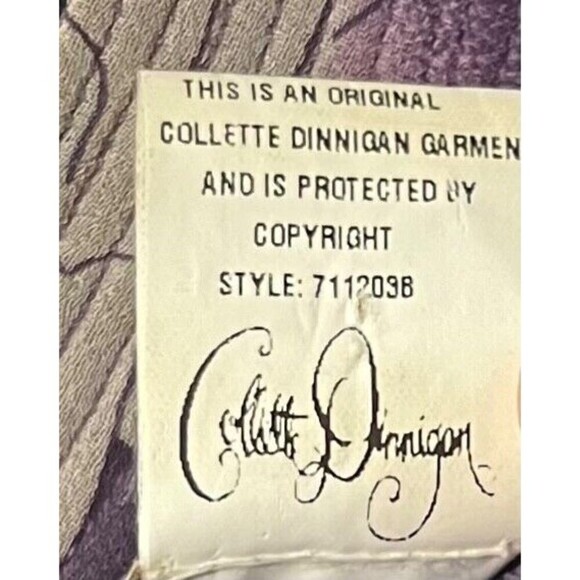 THIS IS AN ORIGINAL
COLLETTE DINNIGAN GARMEN
AND IS PROTECTED BY
COPYRIGHT
STYLE: 7112036
Collette Dinnigan